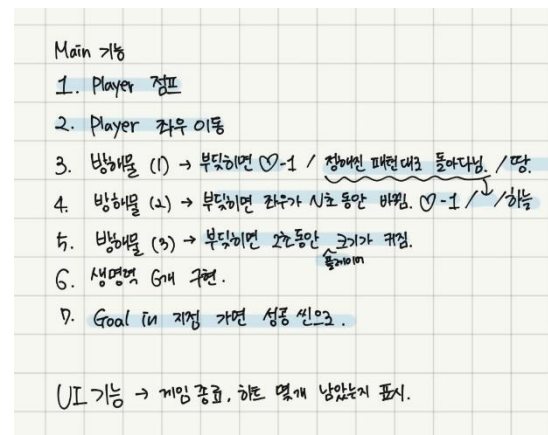 Main 기능
1. Player 점프
2. Player 좌우 이동
3. 방해물 (1) → 부딪히면 ♡-1 / 정해진 패턴대로 돌아다님. / 땅.
4. 방해물 (2) → 부딪히면 좌우가 N초 동안 바뀜. ♡-1 / ↓ / 하늘
5. 방해물 (3) → 부딪히면 2초동안 크기가 커짐.
플레이어
6. 생명력 6개 구현.
7. Goal in 지점 가면 성공 씬으로.
UI 기능 → 게임 종료, 하트 몇개 남았는지 표시.